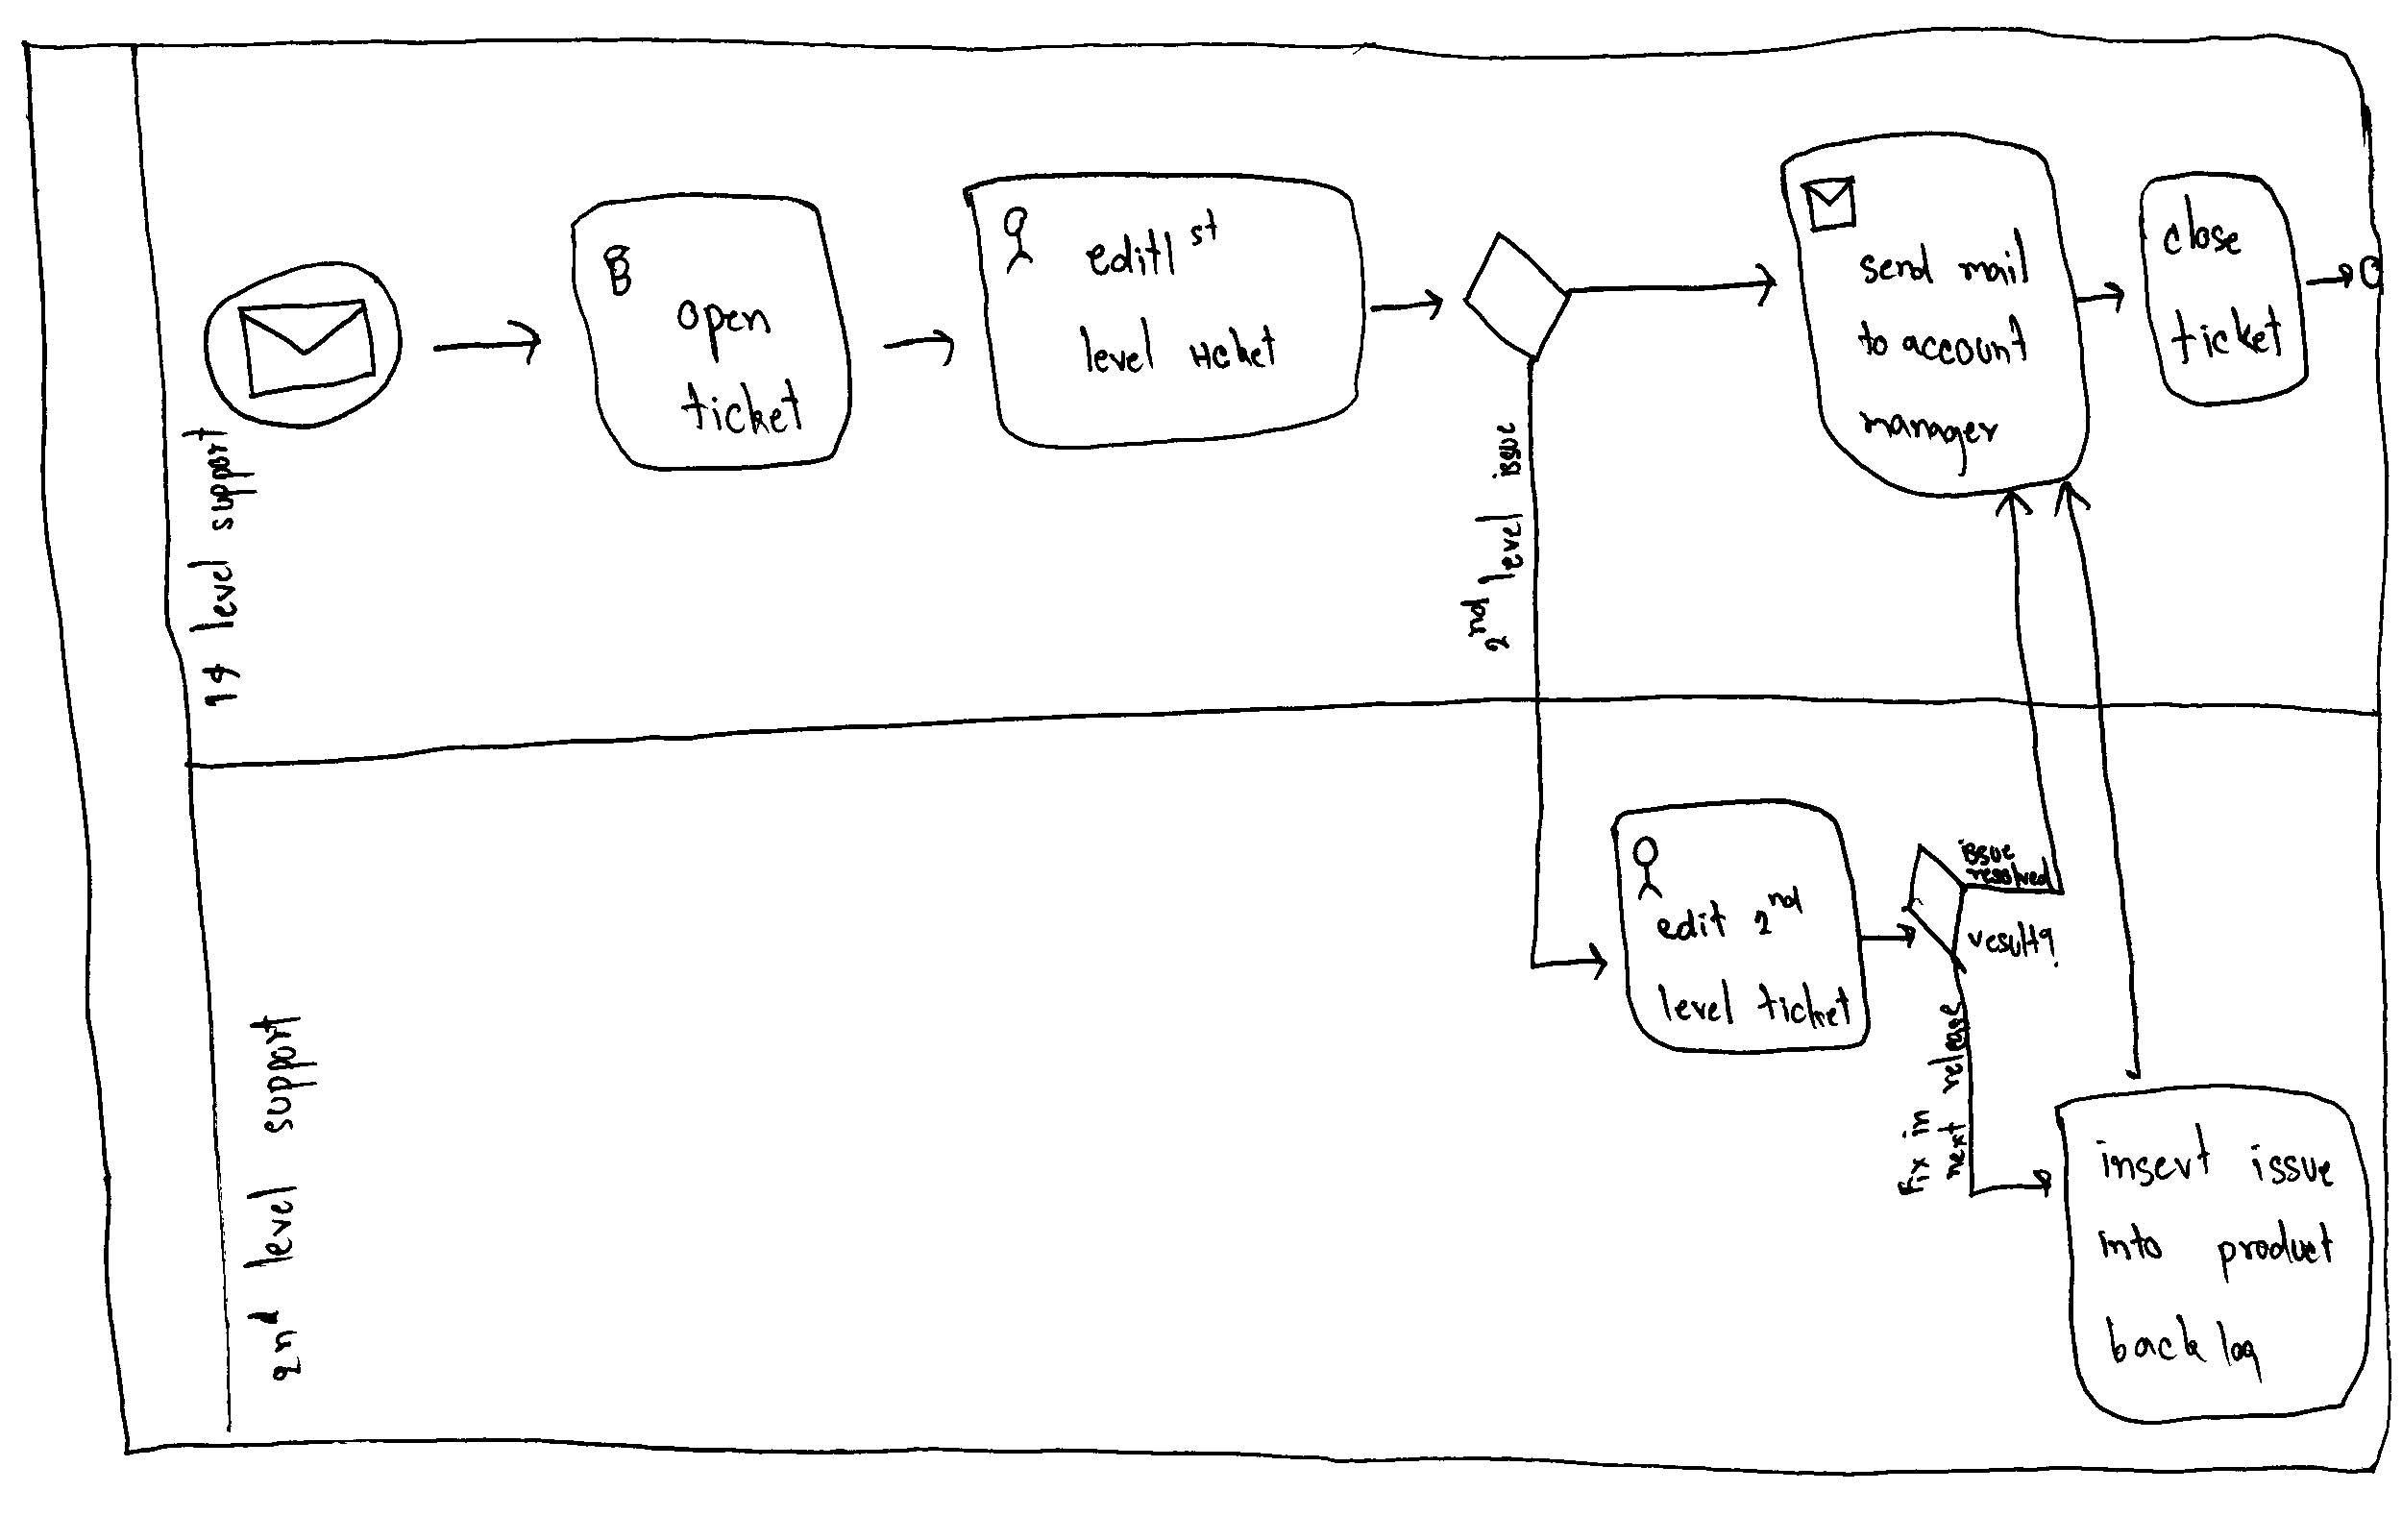 1st level support
open
ticket
edit 1st
level ticket
2nd level issue
send mail
to account
manager
close
ticket
2nd level support
edit 2nd
level ticket
issue
resolved
result?
fix in
next release
insert issue
into product
back log